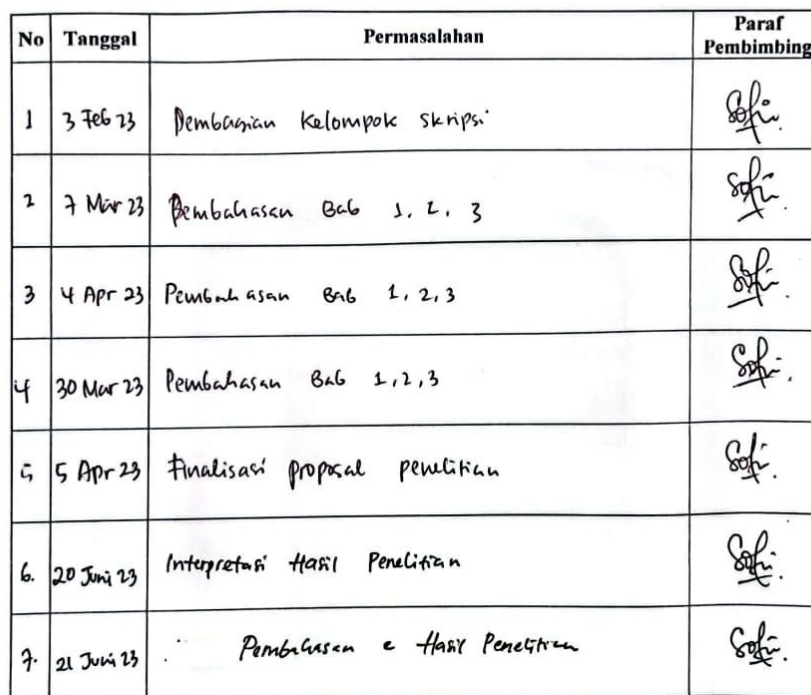 No Tanggal Permasalahan Paraf Pembimbing
1 3 Feb 23 Pembagian Kelompok Skripsi
2 7 Mar 23 Pembahasan Bab 1, 2, 3
3 4 Apr 23 Pembahasan Bab 1, 2, 3
4 30 Mar 23 Pembahasan Bab 1, 2, 3
5 5 Apr 23 Finalisasi proposal penelitian
6. 20 Juni 23 Interpretasi Hasil Penelitian
7. 21 Juni 23 Pembahasan Hasil Penelitian